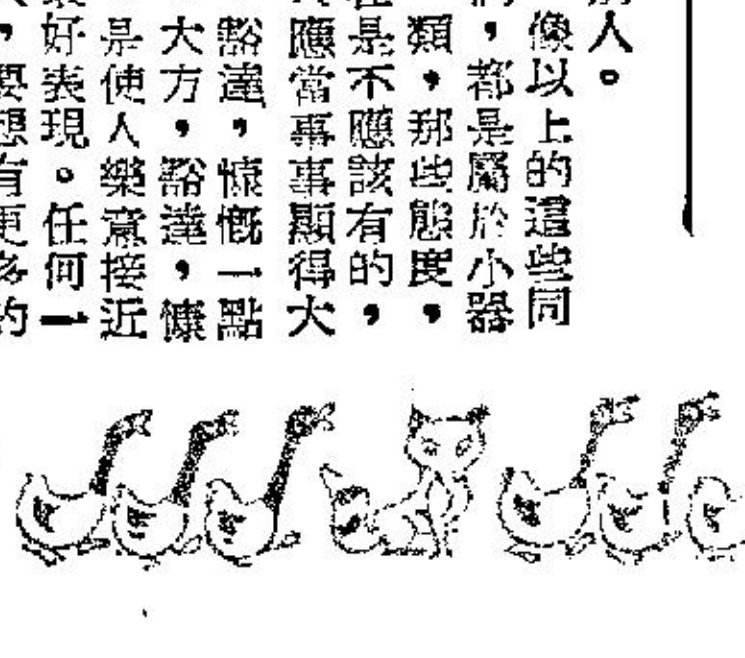 人。
像以上的這些同
，都是屬於小器
類，那些態度，
是不應該有的，
應當事事顯得大
豁達，慷慨一點
大方，豁達，慷
是使人樂意接近
好表現。任何一
，要想有更多的